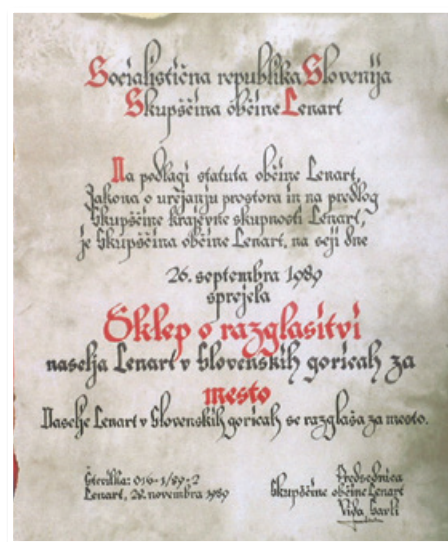 Socialistična republika Slovenija
Skupščina občine Lenart
Na podlagi statuta občine Lenart,
Zakona o urejanju prostora in na predlog
Skupščine krajevne skupnosti Lenart,
je Skupščina občine Lenart, na seji dne
26. septembra 1989
sprejela
Sklep o razglasitvi
naselja Lenart v Slovenskih goricah za
mesto
Naselje Lenart v Slovenskih goricah se razglaša za mesto.
Številka: 016-1/89-2
Lenart, 28. novembra 1989
Predsednica
Skupščine občine Lenart
Vida Šavli